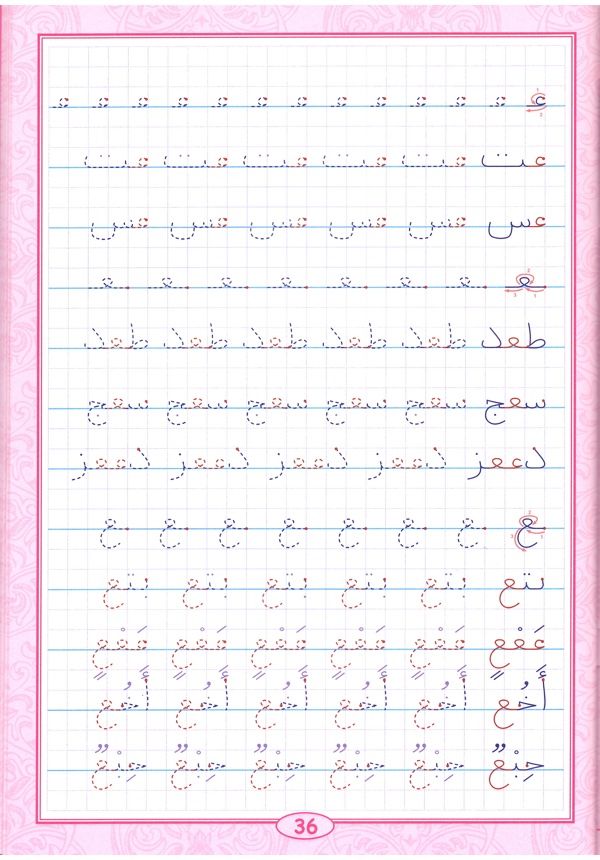 عـ عـ عـ عـ عـ عـ عـ عـ عـ عـ عـ عـ عـ
عت عت عت عت عت عت
عس عس عس عس عس عس
ـعـ ـعـ ـعـ ـعـ ـعـ ـعـ ـعـ ـعـ
طعد طعد طعد طعد طعد طعد
سعج سعج سعج سعج سعج سعج
ـع ـع ـع ـع ـع ـع ـع ـع
بتع بتع بتع بتع بتع بتع
عَعْع عَعْع عَعْع عَعْع عَعْع عَعْع
أَخُعٍ أَخُعٍ أَخُعٍ أَخُعٍ أَخُعٍ أَخُعٍ
36